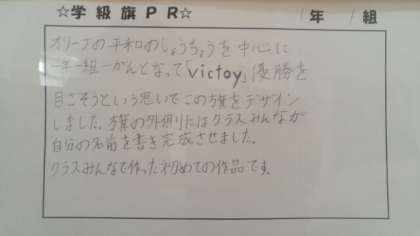 ☆学級旗PR☆ 1年 組
オリーブの平和のしょうちょうを中心に
一年一組一がんとなって「victoy」優勝を
目ざそうという思いでこの旗をデザイン
しました。旗の外側にはクラスみんなが
自分の名前を書き完成させました。
クラスみんなで作った初めての作品です。